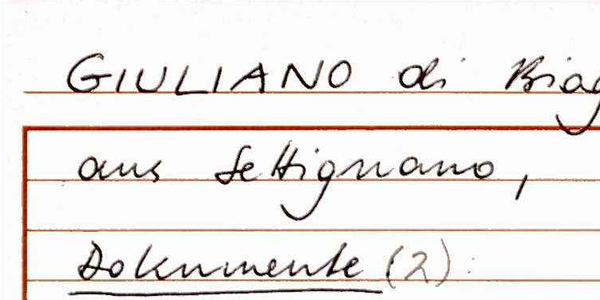 GIULIANO di Biag
aus Settignano,
Dokumente (2):